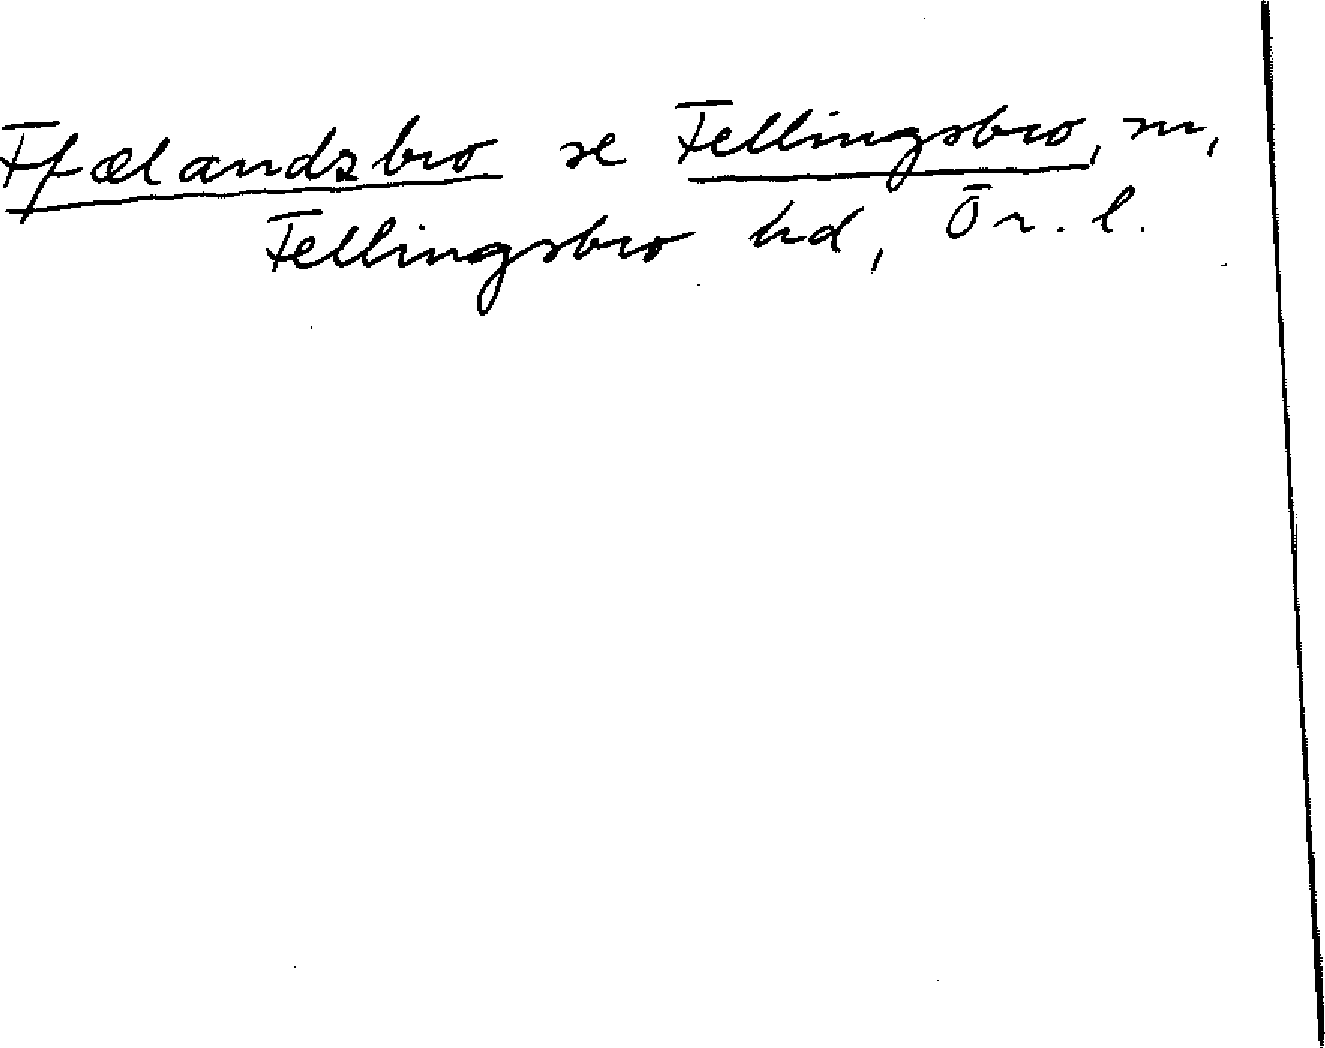 Ffælandsbro se Fellingsbro, sn,
Fellingsbro hd, Ör. l.